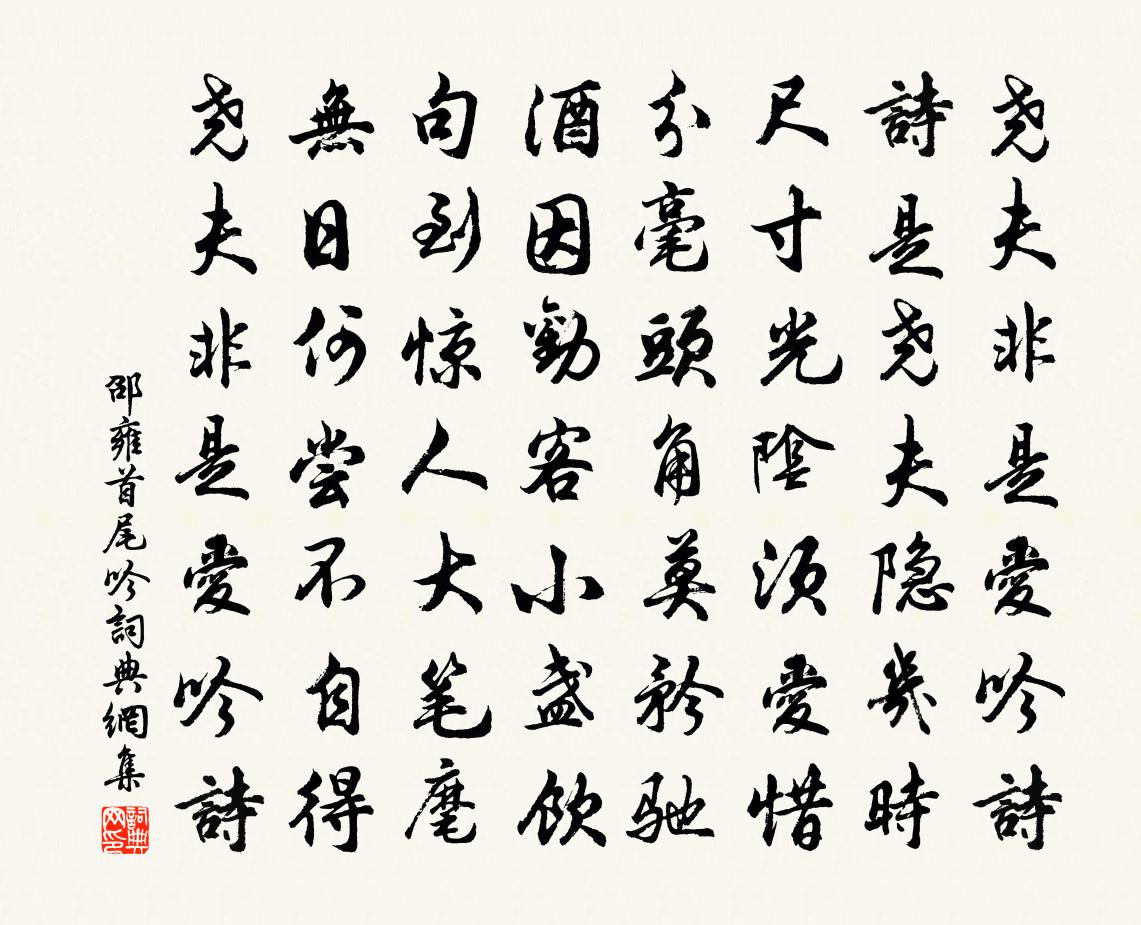 尧夫非是愛吟詩
詩是尧夫隐幾時
尺寸光陰須愛惜
分毫頭角莫矜馳
酒因勸客小盞飲
句到惊人大笔麾
無日何尝不自得
尧夫非是愛吟詩
邵雍首尾吟詞典網集
詞典網印